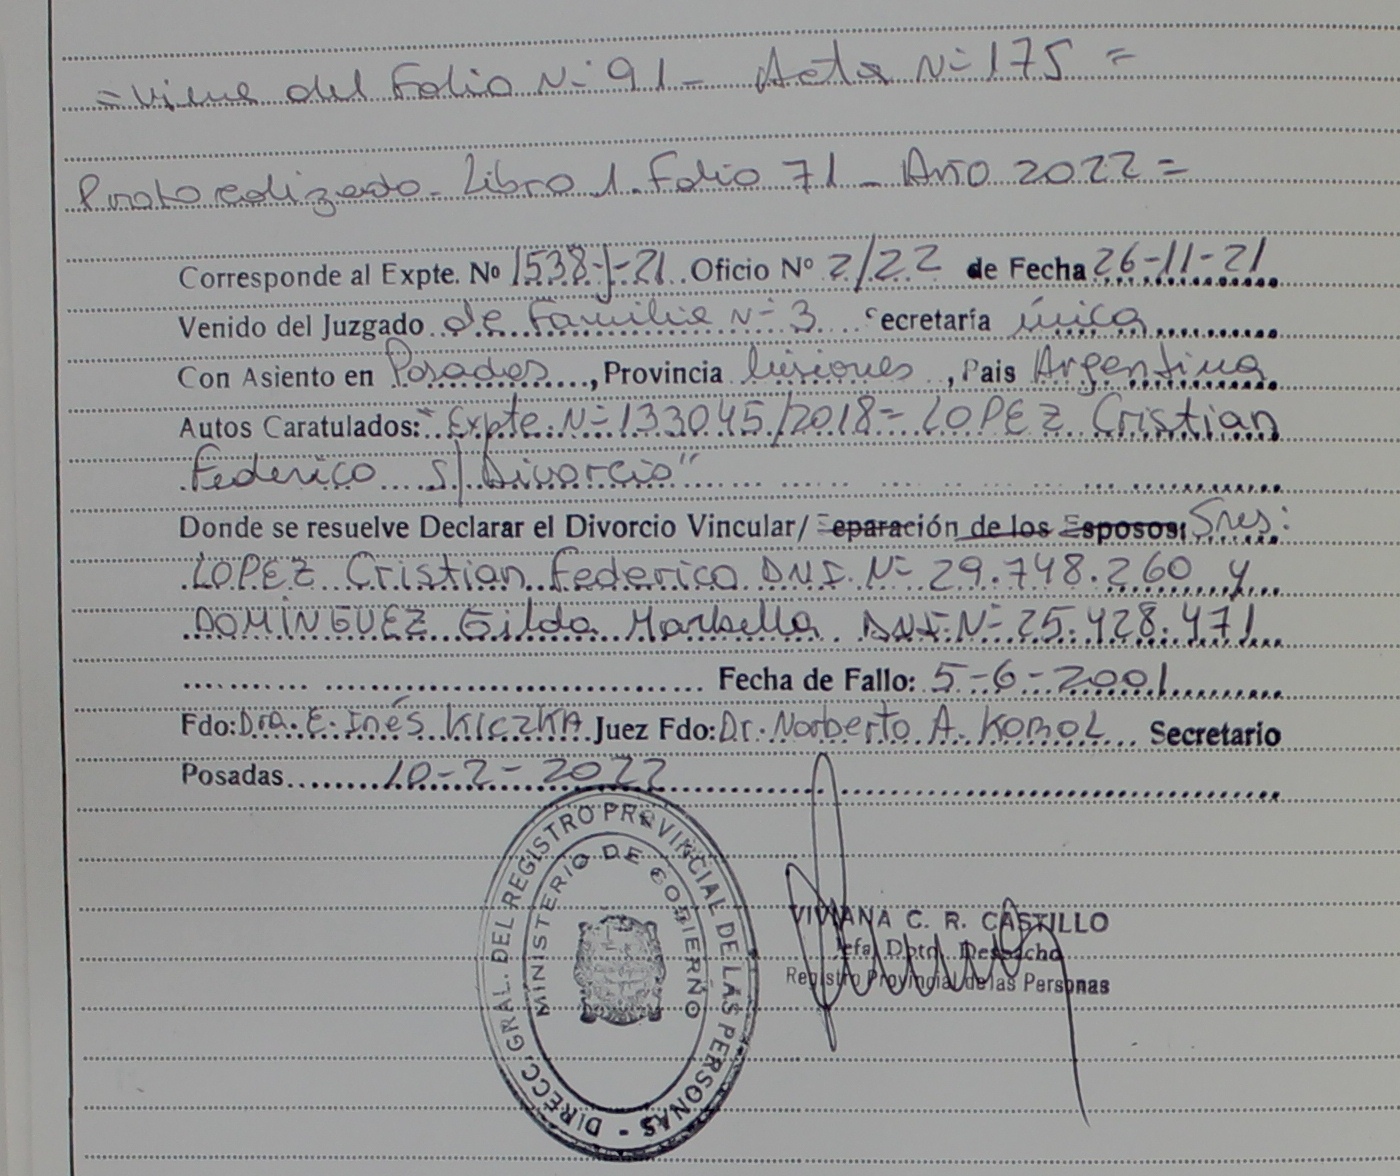 = Viene del Folio Nº 91 - Acta Nº 175 =
Protocolizado - Libro 1 - Folio 71 - Año 2022 =
Corresponde al Expte. Nº 1538-J-21 Oficio Nº 2/22 de Fecha 26-11-21
Venido del Juzgado de Familia Nº 3 Secretaría única
Con Asiento en Posadas, Provincia Misiones, Pais Argentina
Autos Caratulados: "Expte. Nº 133045/2018 = LOPEZ Cristian
Federico S/ Divorcio"
Donde se resuelve Declarar el Divorcio Vincular/ Separación de los Esposos: Sres:
LOPEZ Cristian Federico D.N.I. Nº 29.748.260 y
DOMÍNGUEZ Gilda Marbella DNI. Nº 25.428.471
Fecha de Fallo: 5-6-2001
Fdo: Dra. E. Inés KICZKA Juez Fdo: Dr. Norberto A. KOBOL Secretario
Posadas 10-2-2022
DIRECC. GRAL. DEL REGISTRO PROVINCIAL DE LAS PERSONAS -
MINISTERIO DE GOBIERNO
VIVIANA C. R. CASTILLO
Jefa Dpto. Despacho
Registro Provincial de las Personas